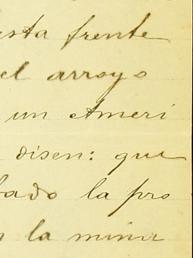 esta frente
el arroyo
un Ameri
disen: que
bado la pro
la mina